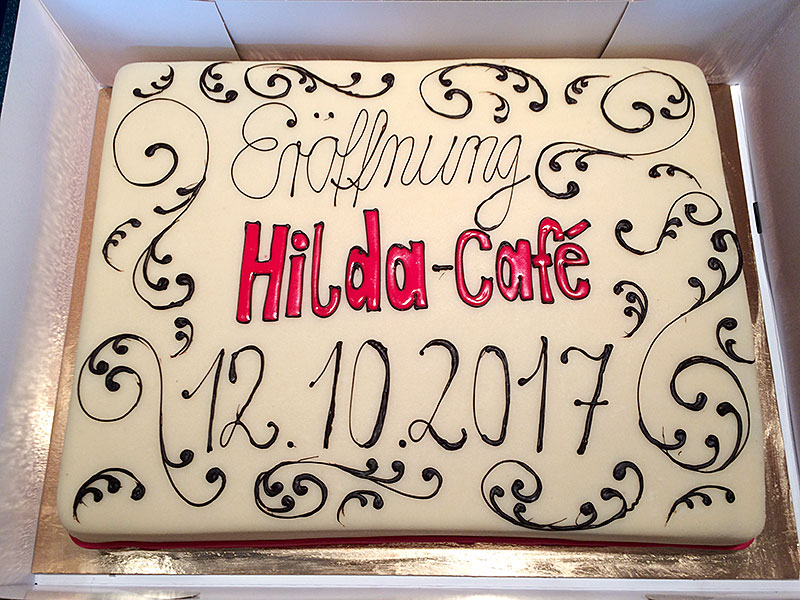 Eröffnung
Hilda-Café
12.10.2017